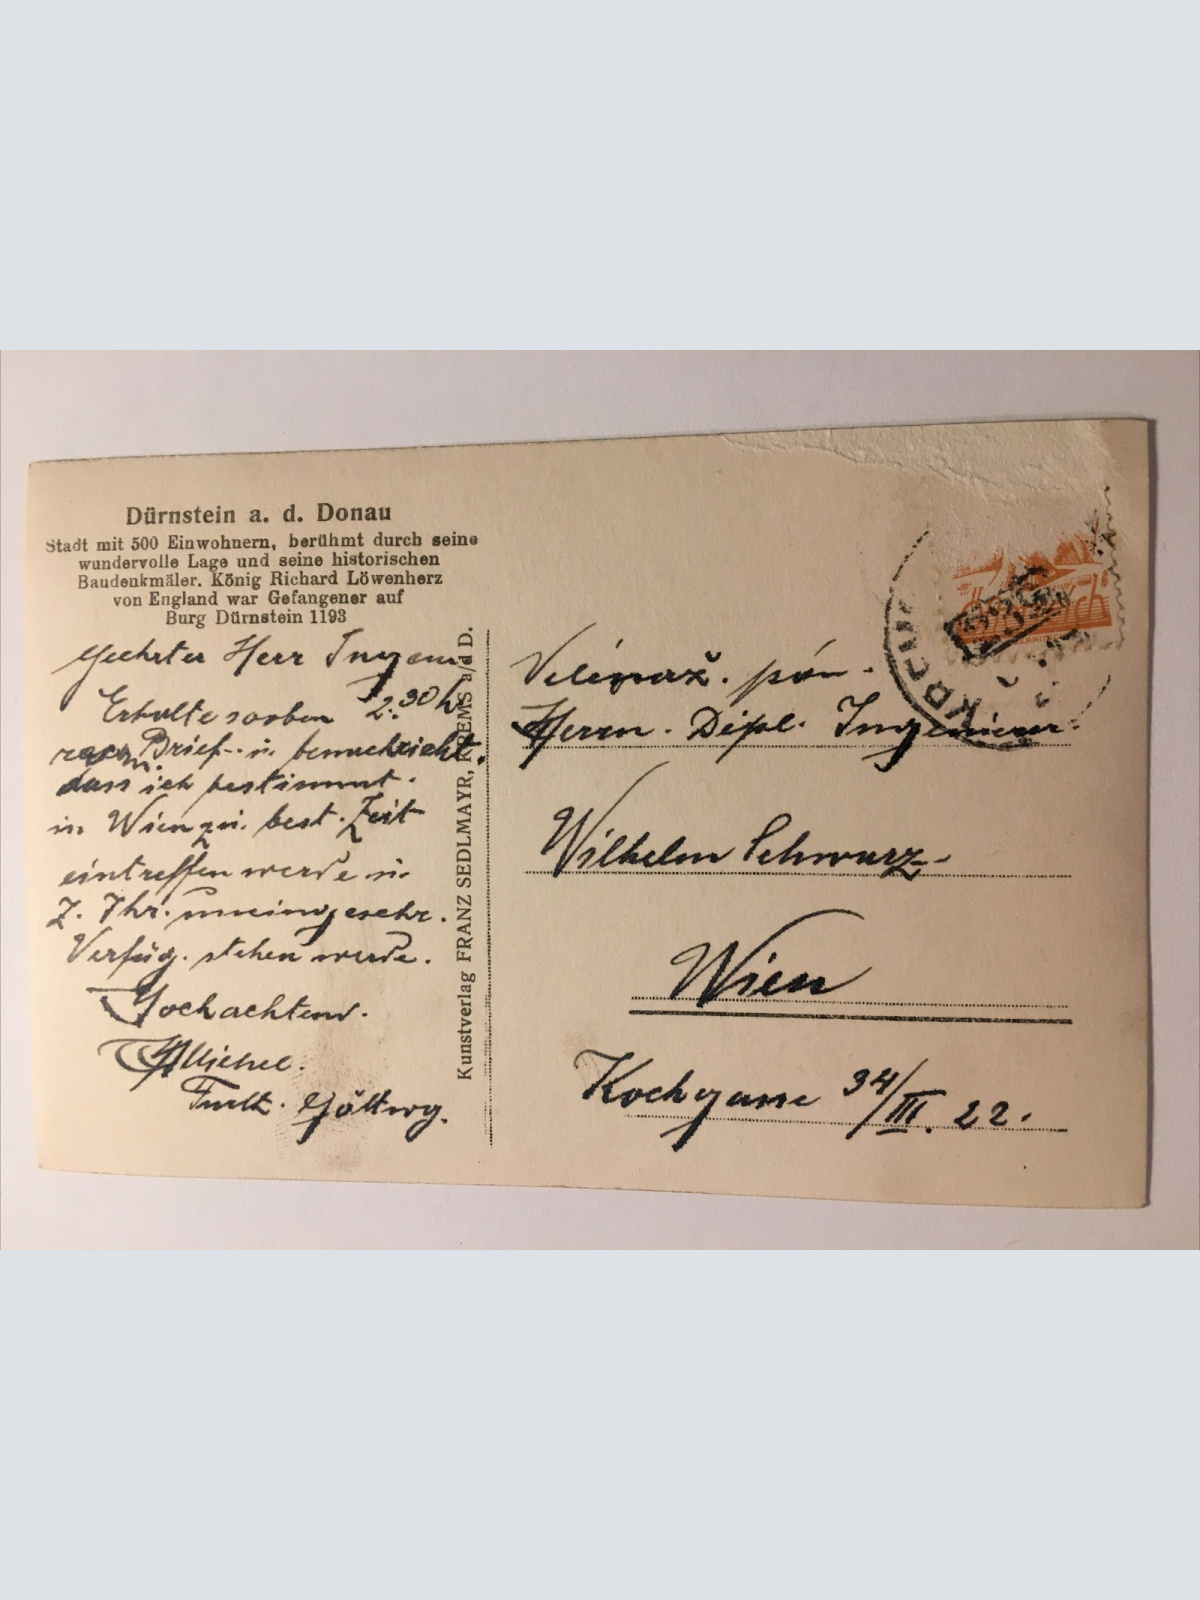 Dürnstein a. d. Donau
Stadt mit 500 Einwohnern, berühmt durch seine
wundervolle Lage und seine historischen
Baudenkmäler. König Richard Löwenherz
von England war Gefangener auf
Burg Dürnstein 1193
Geehrter Herr Ingenieur
Erhalte soeben 2.30 h
Brief u. benachricht.
dass ich bestimmt
in Wien zu best. Zeit
eintreffen werde u.
z. Ihr. uneingeschr.
Verfüg. stehen werde.
Hochachtend.
Göttwg.
Kunstverlag FRANZ SEDLMAYR, KREMS a/d D.
Velevaž. pán
Herrn. Dipl. Ingenieur.
Wilhelm Schwarz
Wien
Kochgasse 34/III. 22.